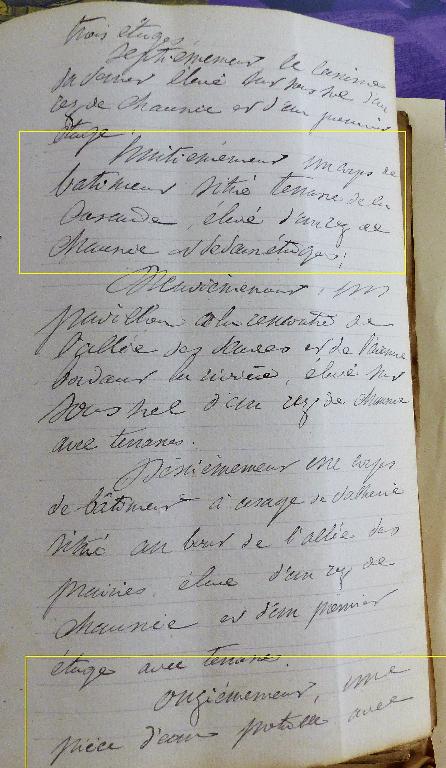 trois étages.
Septièmement le casino
du dernier élevé sur sous sol d'un
rez de chaussée et d'un premier
étage.
Huitièmement un corps de
batiment situé terrasse de la
élevé d'un rez de
chaussée et de deux étages;
Neuvièmement, un
pavillon à la rencontre de
l'allée des et de l'avenue
bordant la rivière, élevé sur
sous sol d'un rez de chaussée
avec terrasse.
Dixièmement un corps
de bâtiment à usage de
situé au bout de l'allée des
prairies, élevé d'un rez de
chaussée et d'un premier
étage avec terrasse.
Onzièmement, une
pièce d'eau potable avec